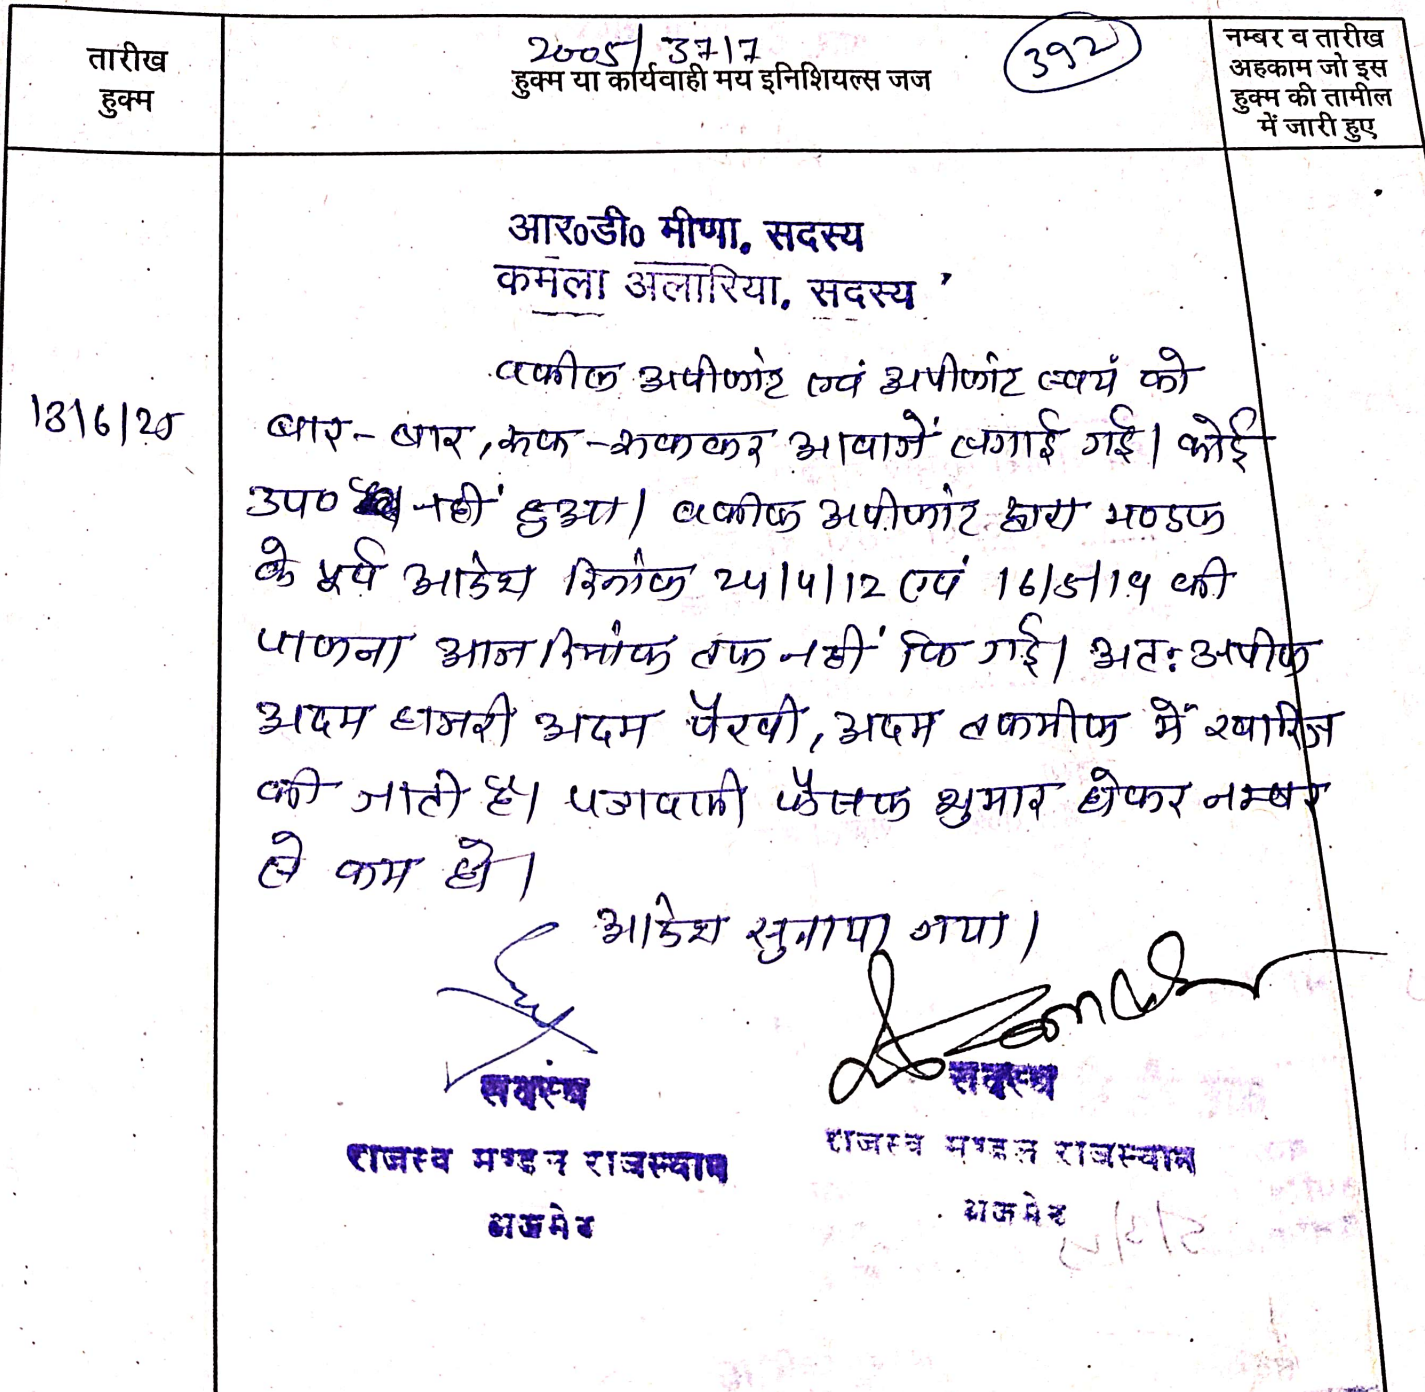 तारीख
हुक्म
2005/3717
हुक्म या कार्यवाही मय इनिशियल्स जज
392
नम्बर व तारीख
अहकाम जो इस
हुक्म की तामील
में जारी हुए
आर०डी० मीणा. सदस्य
कमला अलारिया. सदस्य
वकील अपीलांट एवं अपीलांट स्वयं को
18/6/25
बार-बार, रूक-रूककर आवाजें लगाई गई। कोई
उप० नहीं हुआ। वकील अपीलांट द्वारा मण्डल
के पूर्व आदेश दिनांक 24/4/12 एवं 16/5/19 की
पालना आज दिनांक तक नहीं कि गई। अतः अपील
अदम हाजरी अदम पैरवी, अदम तकमील में खारिज
की जाती है। पत्रावली फैसल शुमार होकर नम्बर
से कम हो।
आदेश सुनाया गया।
सदस्य
सदस्य
राजस्व मण्डल राजस्थान
राजस्व मण्डल राजस्थान
अजमेर
अजमेर